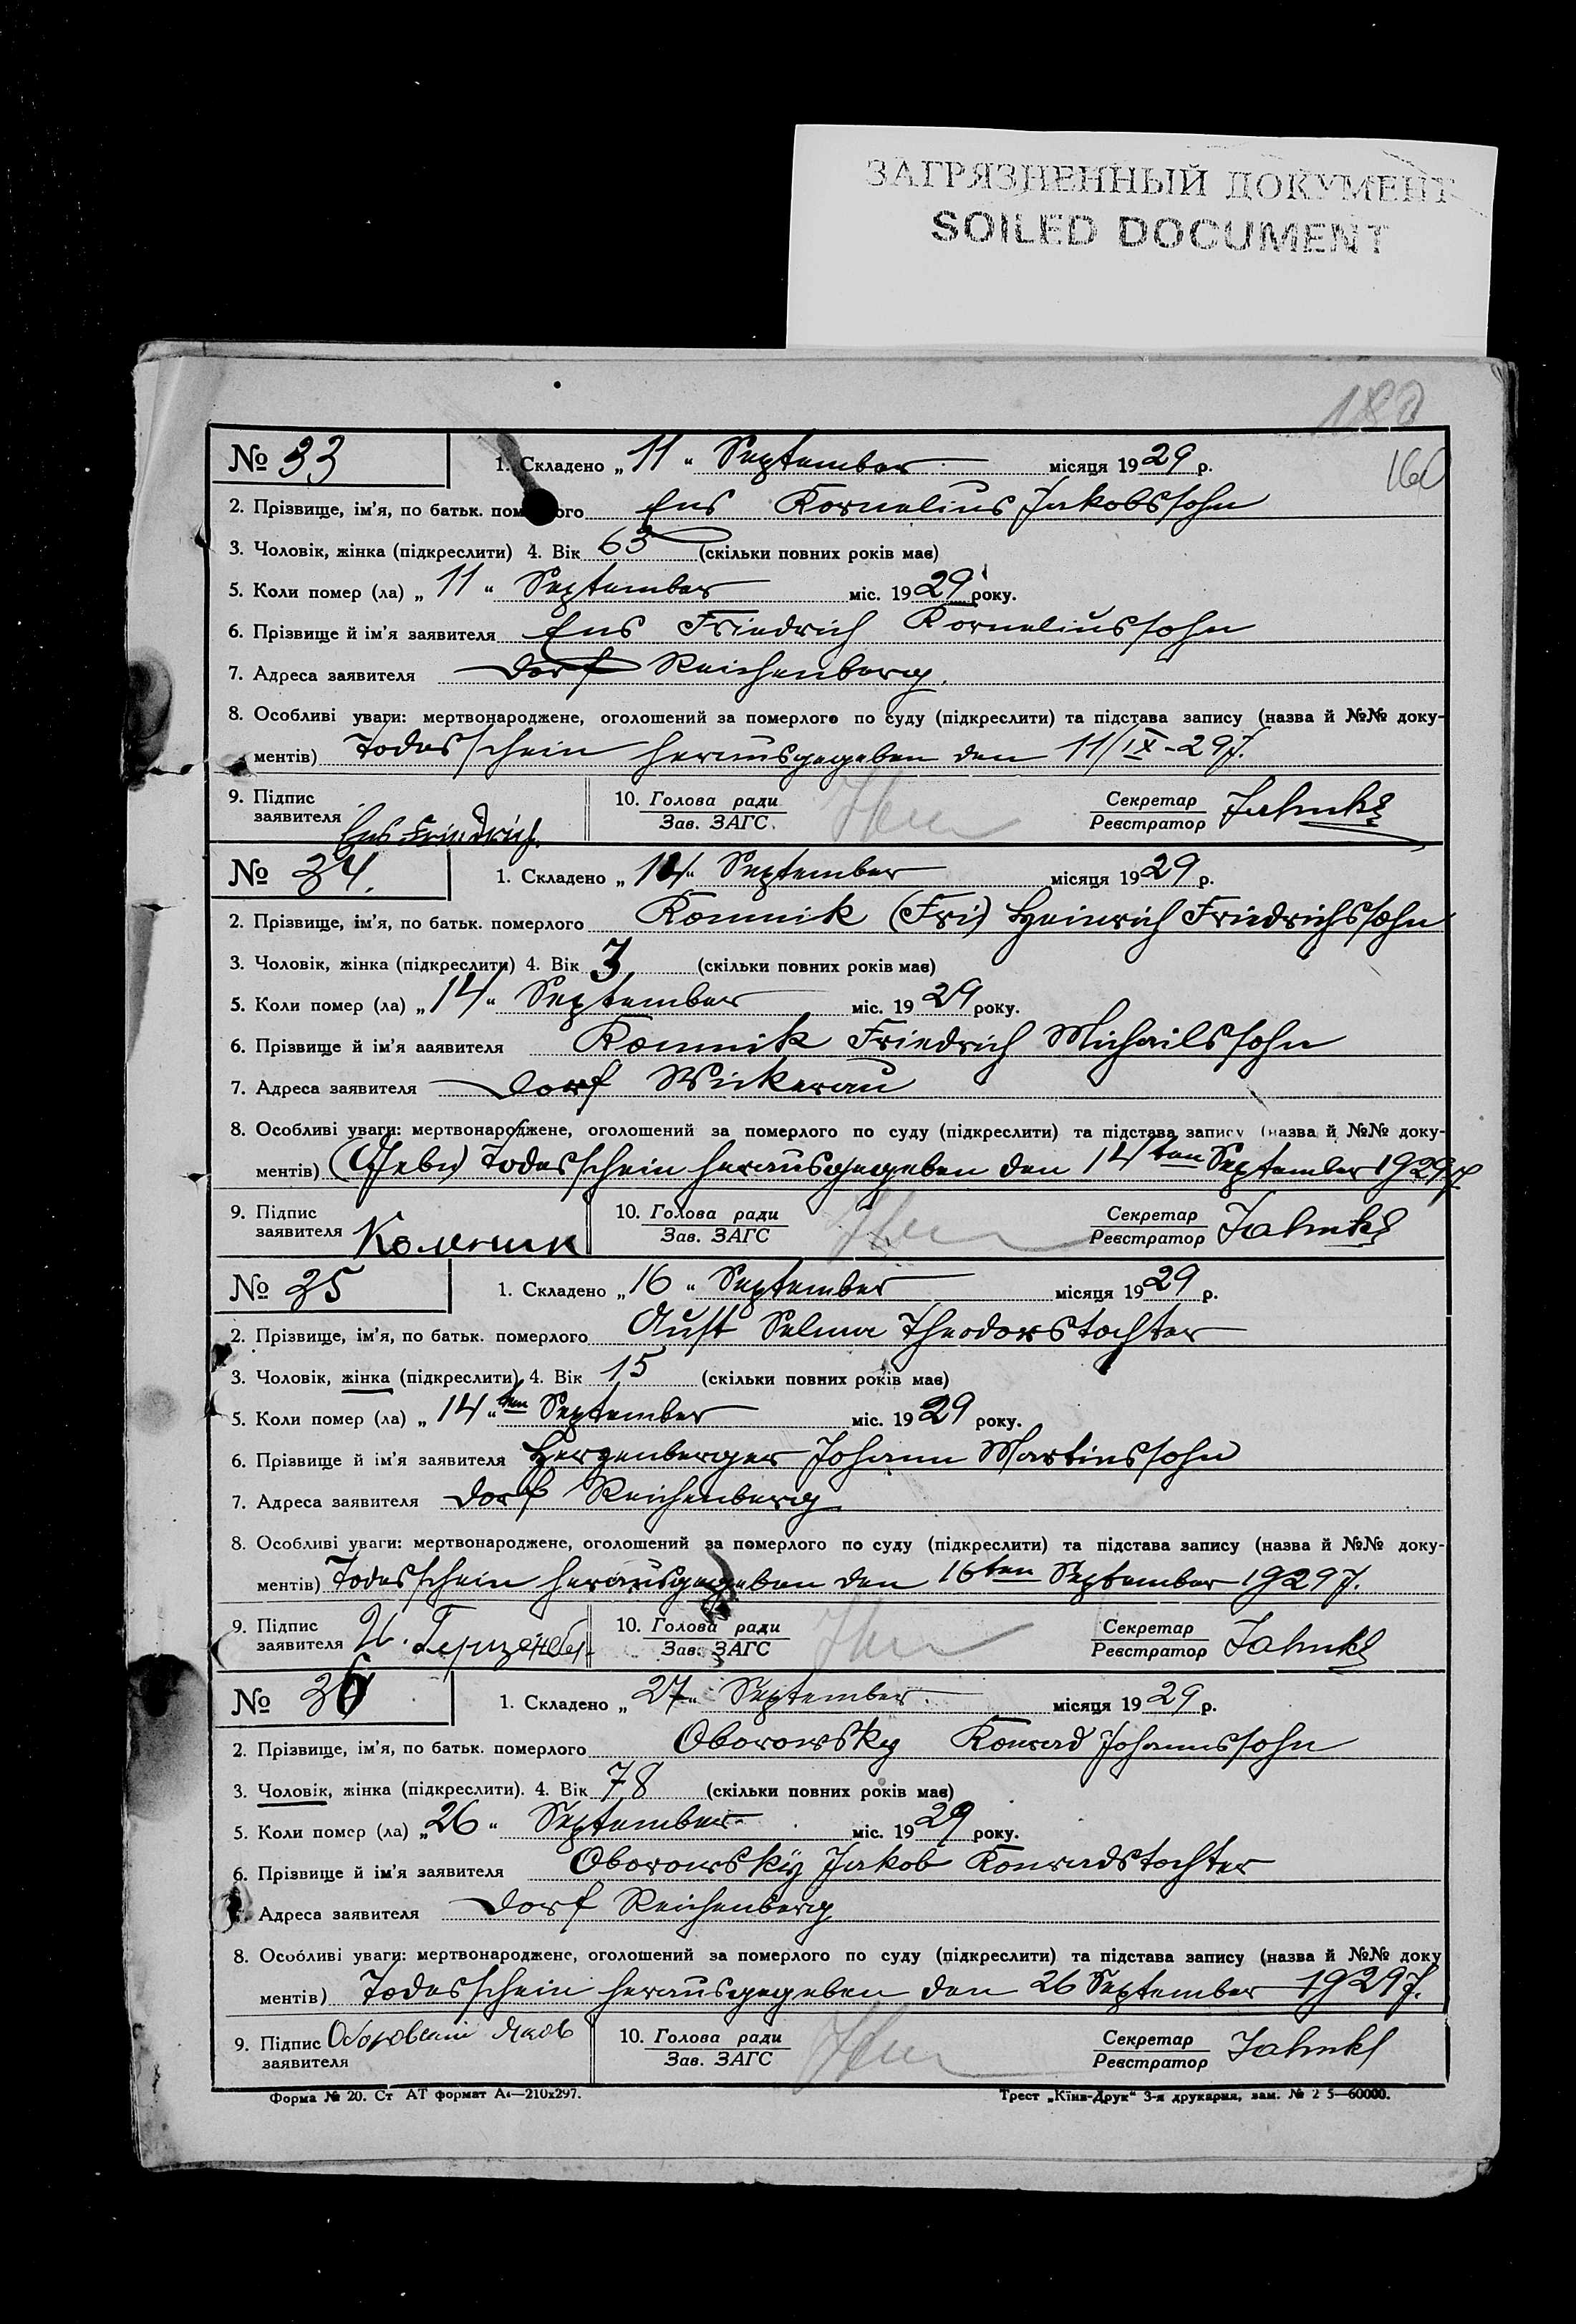 ЗАГРЯЗНЕННЫЙ ДОКУМЕНТ
SOILED DOCUMENT
180
№ 33 1. Складено „11“ September місяця 1929 р.
2. Прізвище, ім'я, по батьк. померлого Ens Kornelius Jakobssohn
3. Чоловік, жінка (підкреслити) 4. Вік 63 (скільки повних років має)
5. Коли помер (ла) „11“ September міс. 1929 року.
6. Прізвище й ім'я заявителя Ens Friedrich Korneliussohn
7. Адреса заявителя Dorf Reichenberg.
8. Особливі уваги: мертвонароджене, оголошений за померлого по суду (підкреслити) та підстава запису (назва й №№ доку-
ментів) Todesschein herausgegeben den 11/IX-29 J.
9. Підпис заявителя Ens Friedrich. 10. Голова ради Зав. ЗАГС. Секретар Реєстратор Jahnke
№ 34. 1. Складено „14“ September місяця 1929 р.
2. Прізвище, ім'я, по батьк. померлого Komnik (Fri) Heinrich Friedrichssohn
3. Чоловік, жінка (підкреслити) 4. Вік 3 (скільки повних років має)
5. Коли помер (ла) „14“ September міс. 1929 року.
6. Прізвище й ім'я заявителя Komnik Friedrich Michailssohn
7. Адреса заявителя Dorf Wickerau
8. Особливі уваги: мертвонароджене, оголошений за померлого по суду (підкреслити) та підстава запису (назва й №№ доку-
ментів) Todesschein herausgegeben den 14ten September 1929 J.
9. Підпис заявителя Комник 10. Голова ради Зав. ЗАГС Секретар Реєстратор Jahnke
№ 35 1. Складено „16“ September місяця 1929 р.
2. Прізвище, ім'я, по батьк. померлого Aust Selma Theodorstochter
3. Чоловік, жінка (підкреслити) 4. Вік 15 (скільки повних років має)
5. Коли помер (ла) „14“ten September міс. 1929 року.
6. Прізвище й ім'я заявителя Herzenberger Johann Martinssohn
7. Адреса заявителя Dorf Reichenberg.
8. Особливі уваги: мертвонароджене, оголошений за померлого по суду (підкреслити) та підстава запису (назва й №№ доку-
ментів) Todesschein herausgegeben den 16ten September 1929 J.
9. Підпис заявителя И. Герценбер. 10. Голова ради Зав. ЗАГС Секретар Реєстратор Jahnke
№ 36 1. Складено „27“ September місяця 1929 р.
2. Прізвище, ім'я, по батьк. померлого Oborowsky Konrad Johannssohn
3. Чоловік, жінка (підкреслити). 4. Вік 78 (скільки повних років має)
5. Коли помер (ла) „26“ September міс. 1929 року.
6. Прізвище й ім'я заявителя Oborowsky Jakob Konradstochter
Адреса заявителя Dorf Reichenberg
8. Особливі уваги: мертвонароджене, оголошений за померлого по суду (підкреслити) та підстава запису (назва й №№ доку
ментів) Todesschein herausgegeben den 26 September 1929 J.
9. Підпис заявителя Оборовский Яков 10. Голова ради Зав. ЗАГС Секретар Реєстратор Jahnke
Форма № 20. Ст АТ формат А4—210х297. Трест „Київ-Друк“ 3-я друкарня, зам. № 2 5—60000.